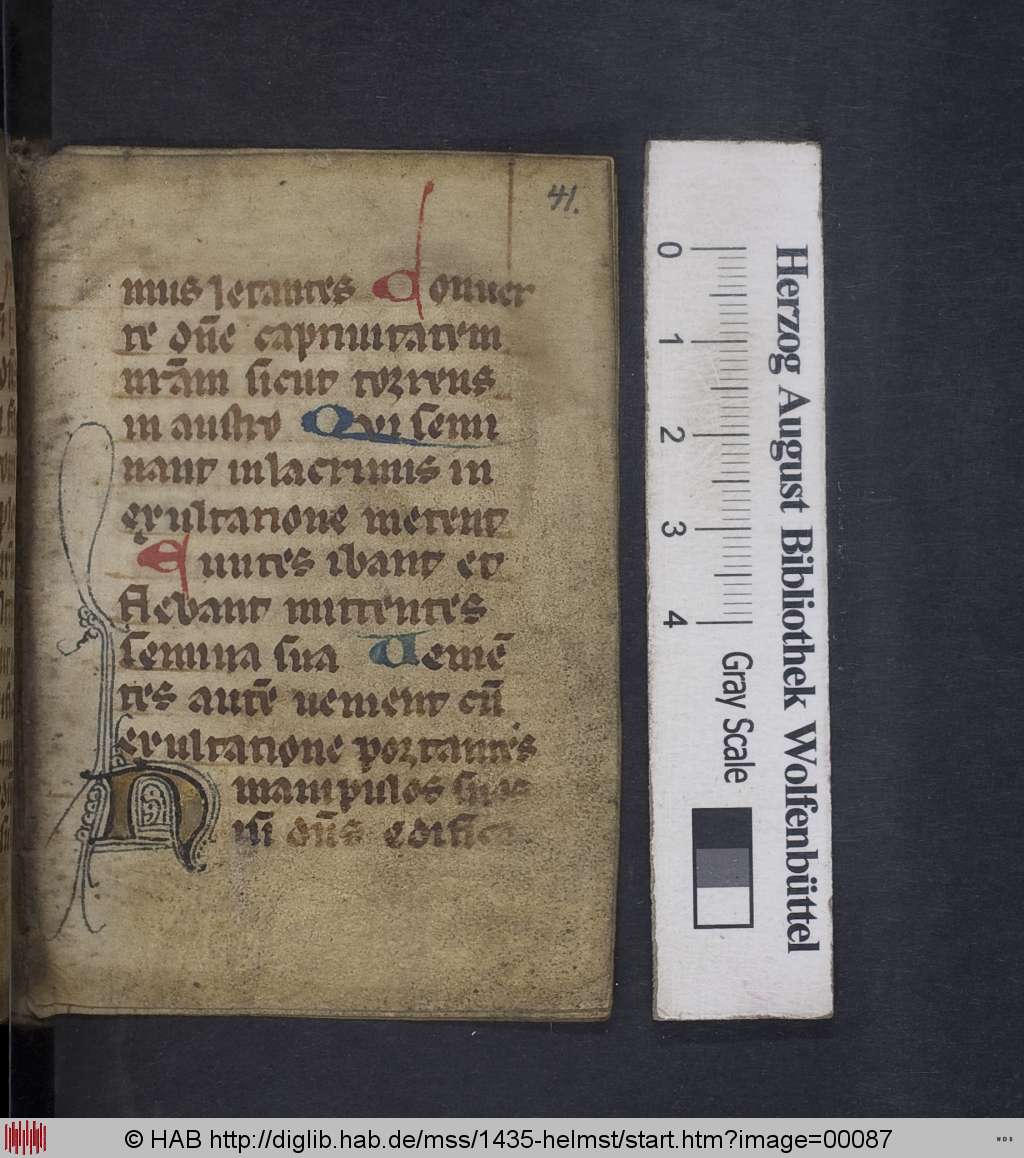 41.
mus letantes Conuer
te dn̄e captiuitatem
nr̄am sicut torrens
in austro Qui semi
nant in lacrimis in
exultatione metent
Euntes ibant et
flebant mittentes
semina sua Uenie᷒̄
tes autē uenient cū
exultatione portantes
manipulos suos
Nisi dn̄s edifica
0 1 2 3 4
Herzog August Bibliothek Wolfenbüttel
Gray Scale
© HAB http://diglib.hab.de/mss/1435-helmst/start.htm?image=00087